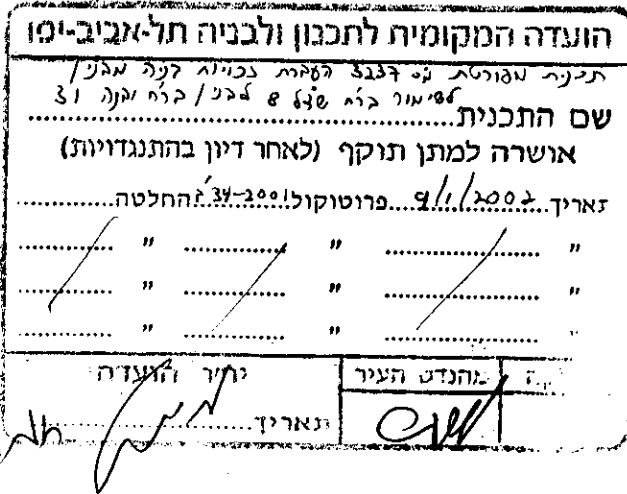 הועדה המקומית לתכנון ולבניה תל-אביב-יפו
תכנית מפורטת מס 3237 העברת זכויות בניה מבנין
לשימור ברח שצל 8 לבנין ברח יבנה 31
שם התכנית
אושרה למתן תוקף (לאחר דיון בהתנגדויות)
תאריך 9/1/2002 פרוטוקול 2001-34 החלטה
" " "
" " "
" " "
מהנדס העיר יו"ר הועדה
תאריך